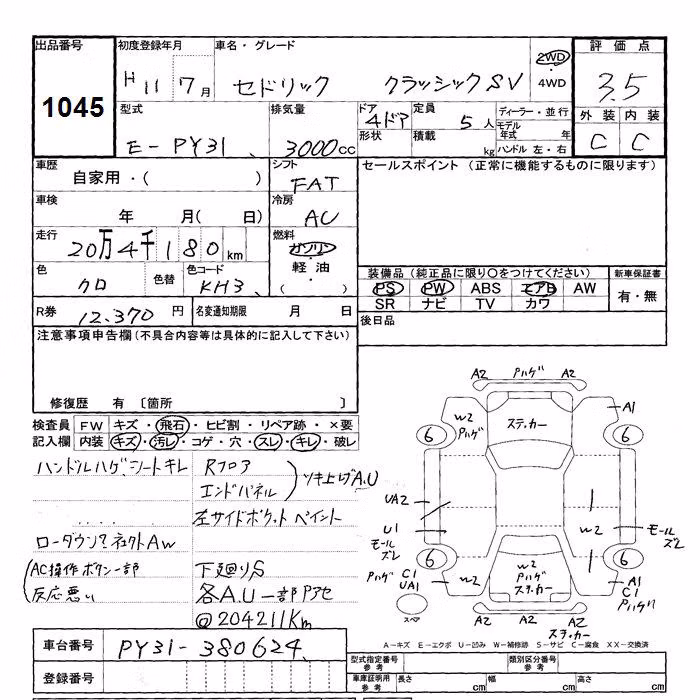 出品番号 初度登録年月 車名・グレード 評価点
1045 H 11 7月 セドリック クラッシックSV 2WD ・4WD 3.5
型式 排気量 ドア 定員 ディーラー・並行 外装 内装
E-PY31 3000cc 4ドア 5人 モデル年式 年 C C
形状 積載 kg ハンドル 左・右
車歴 シフト セールスポイント (正常に機能するものに限ります)
自家用・( ) FAT
車検 冷房
年 月( 日) AC
走行 燃料
20万4千180km ガソリン
軽油
( )
色 色替 色コード 装備品(純正品に限り○をつけてください) 新車保証書
クロ KH3 PS PW ABS エアB AW 有・無
SR ナビ TV カワ
R券 12.370円 名変通知期限 月 日 後日品
注意事項申告欄(不具合内容等は具体的に記入して下さい)
修復歴 有 〔箇所 〕
検査員 FW キズ・飛石・ヒビ割・リペア跡・×要
記入欄 内装 キズ・汚レ・コゲ・穴・スレ・キレ・破レ
ハンドルハゲ、シートキレ Rフロア
エンドパネル ツキ上げA.U
左サイドポケット ペイント
ローダウン? 社外AW
AC操作ボタン一部 下廻りS
反応悪い 各A.U一部Pアセ
@204211Km
A2 Pハゲ A2
ステッカー
W2 Pハゲ A1
6 6
UA2
U1 モールズレ W2 モールズレ
6 6
Pハゲ C1 UA1 W2 W2 Pハゲ ステッカー A1 C1 Pハゲ
スペア
A2 A2 A2
ステッカー
A-キズ E-エクボ U-凹み W-補修跡 S-サビ C-腐食 XX-交換済
車台番号 PY31-380624
型式指定番号 参考 類別区分番号 参考
登録番号 車庫証明用 参考 長さ cm 幅 cm 高さ cm